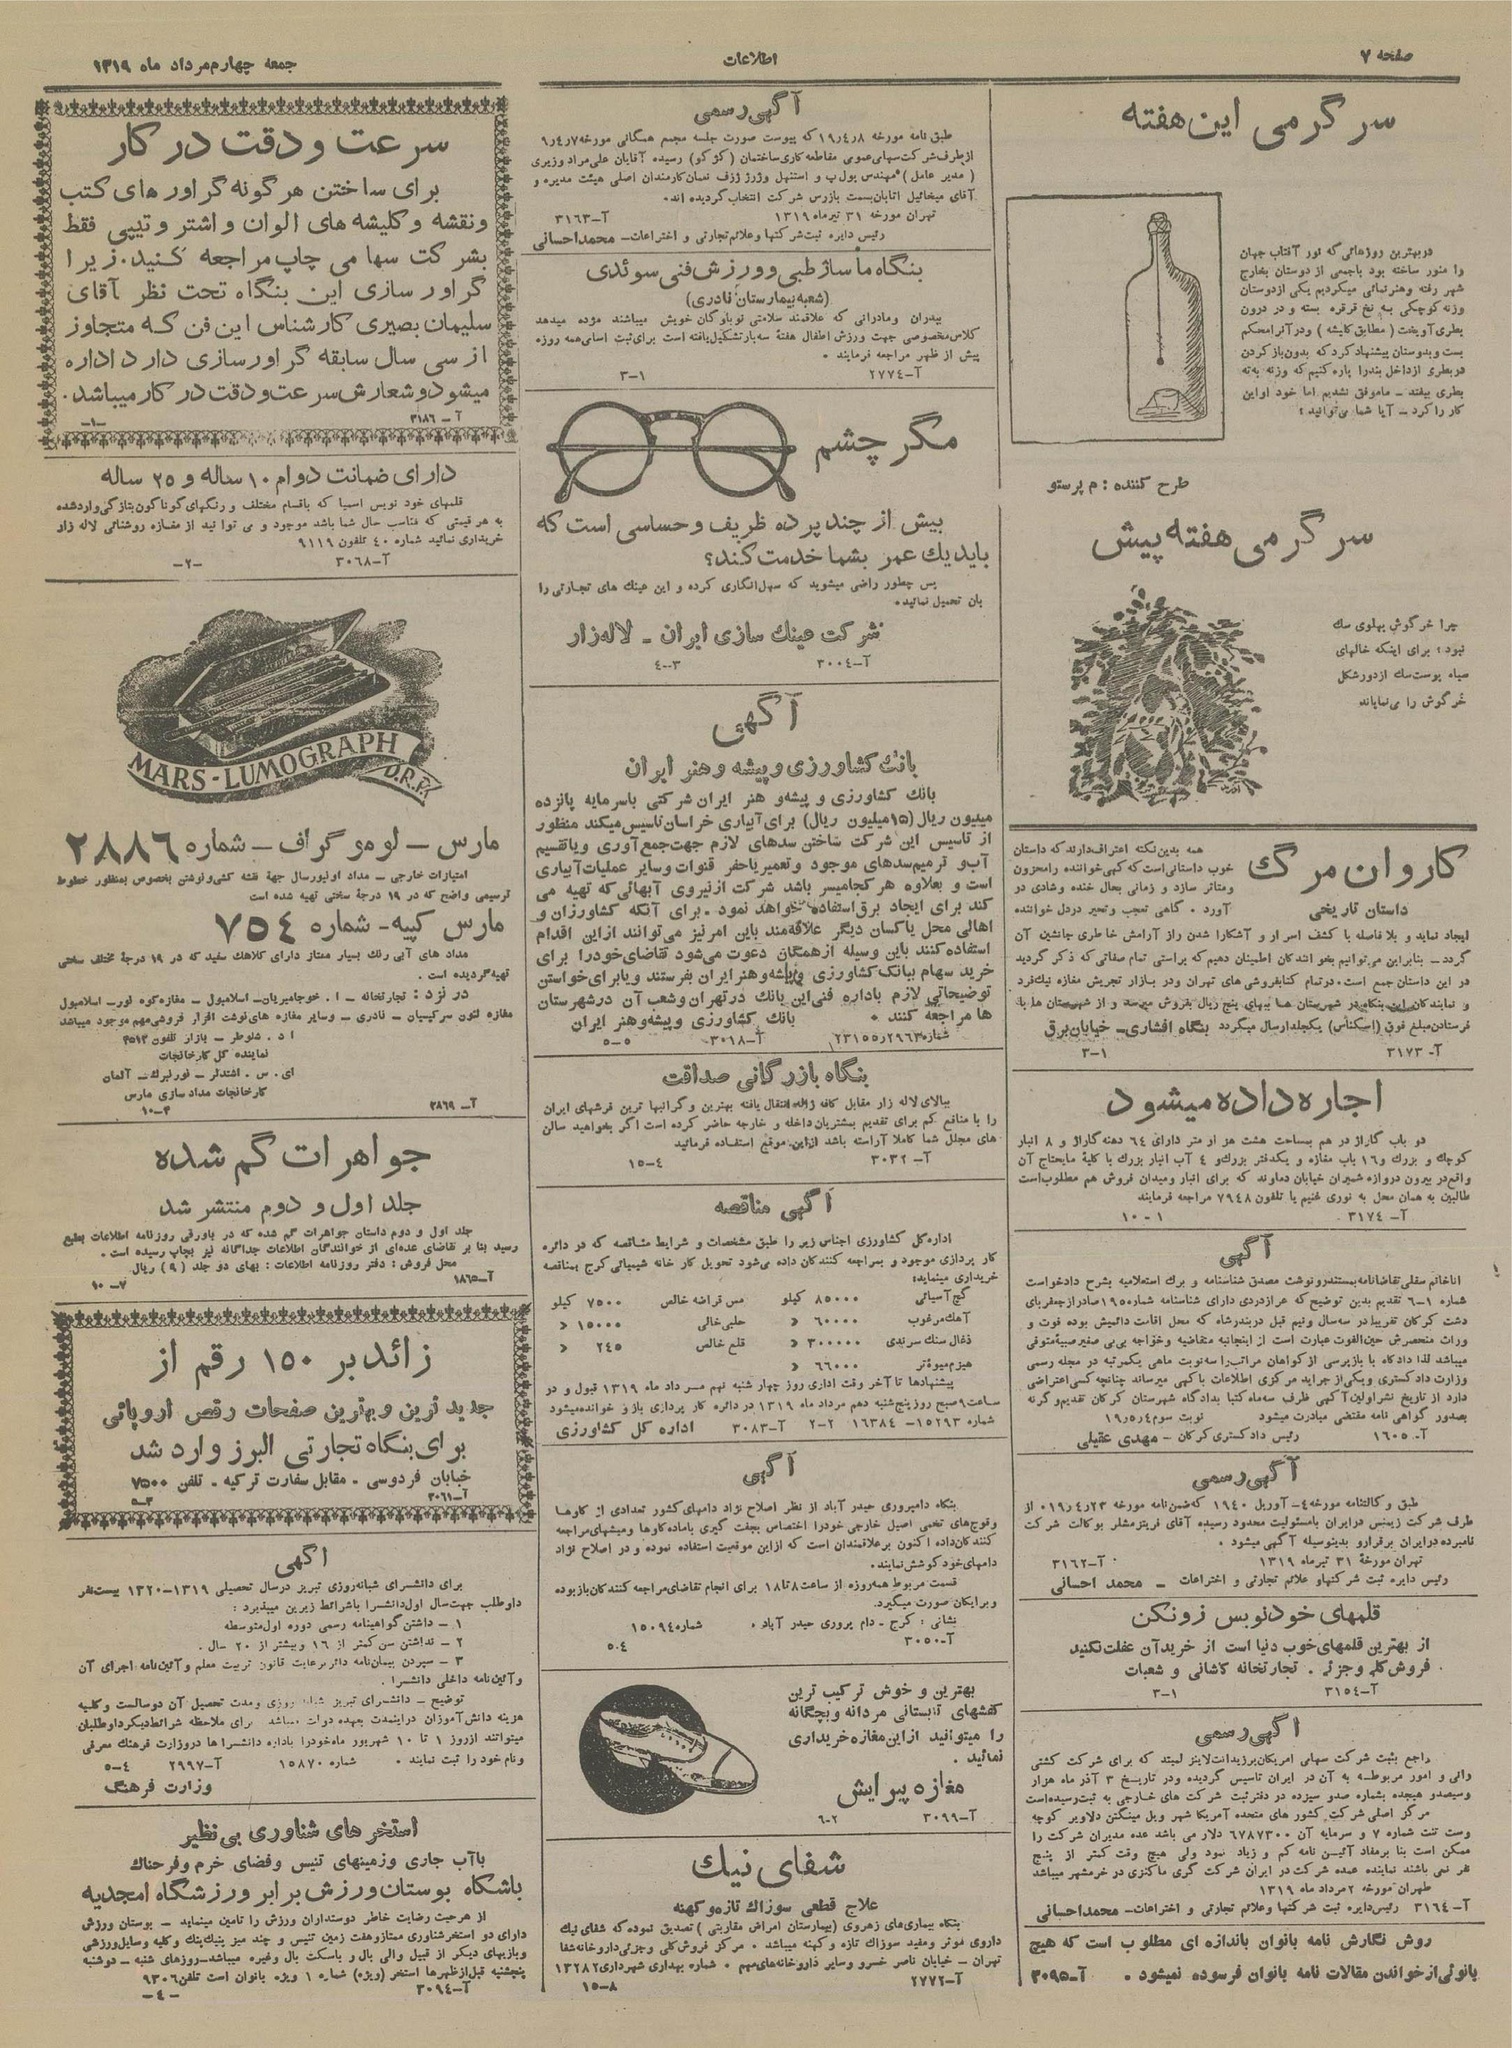 صفحه ۷
اطلاعات
جمعه چهارم مرداد ماه ۱۳۱۹
سرگرمی این هفته
در بهترین روزهائی که نور آفتاب جهان
را منور ساخته بود باجمعی از دوستان بخارج
شهر رفته وهنرنمائی میکردیم یکی ازدوستان
وزنه کوچکی به نخ قرقره بسته و در درون
بطری آویخت (مطابق کلیشه) ودر آنرا محکم
بست و بدوستان پیشنهاد کرد که بدون باز کردن
در بطری از داخل بند را پاره کنیم که وزنه به ته
بطری بیفتد ـ ما موفق نشدیم اما خود او این
کار را کرد ـ آیا شما می توانید ؟
طرح کننده : م پرستو
سرگرمی هفته پیش
چرا خرگوش پهلوی سگ
نبود ؛ برای اینکه خالهای
سیاه پوست سگ از دور شکل
خرگوش را می نمایاند
کاروان مرگ
داستان تاریخی
همه بدین نکته اعتراف دارند که داستان
خوب داستانی است که گهی خواننده را محزون
ومتاثر سازد و زمانی بحال خنده وشادی در
آورد . گاهی تعجب وتحیر در دل خواننده
ایجاد نماید و بلا فاصله با کشف اسرار و آشکارا شدن راز آرامش خاطری جانشین آن
گردد ـ بنابراین می توانیم بخوانندگان اطمینان دهیم که براستی تمام صفاتی که ذکر گردید
در این داستان جمع است . در تمام کتابفروشی های تهران ودر بازار تجریش مغازه نیک فرد
و نمایندگان این بنگاه در شهرستان ها ببهای پنج ریال بفروش میرسد و از شهرستان ها با
فرستادن مبلغ فوق (اسکناس) یکجلد ارسال میگردد بنگاه افشاری ـ خیابان برق
آ ـ ۳۱۷۳
۳ـ۱
اجاره داده میشود
دو باب گاراژ در هم بمساحت هشت هزار متر دارای ۶۴ دهنه گاراژ و ۸ انبار
کوچک و بزرگ و ۱۶ باب مغازه و یکدفتر بزرگ و ۴ آب انبار بزرگ با کلیه مایحتاج آن
واقع در بیرون دروازه شمیران خیابان دماوند که برای انبار ومیدان فروش هم مطلوب است
طالبین به همان محل به نوری غنیم یا تلفون ۷۹۴۸ مراجعه فرمایند
آ ـ ۳۱۷۴
۱ - ۱۰
آگهی
شماره ۱ـ۶ تقدیم بدین توضیح که دارای شناسنامه شماره ۱۹۵ صادر از جعفربای
دشت گرگان تقریبا در سه سال ونیم قبل در بندرشاه که محل اقامت دائمیش بوده فوت و
میباشد لذا دادگاه با بازپرسی از گواهان مراتب را سه نوبت ماهی یکمرتبه در مجله رسمی
وزارت دادگستری و یکی از جراید مرکزی اطلاعات باگهی میرساند چنانچه کسی اعتراضی
دارد از تاریخ نشر اولین آگهی ظرف سه ماه کتبا بدادگاه شهرستان گرگان تقدیم و گرنه
بصدور گواهی نامه مقتضی مبادرت میشود نوبت سوم ۴ر۵ر۱۹
آ ـ ۱۶۰۵ رئیس دادگستری گرگان ـ مهدی عقیلی
آگهی رسمی
طبق وکالتنامه مورخه ۴ـ آوریل ۱۹۴۰ که ضمن نامه مورخه ۲۳ر۴ر۰۱۹ از
طرف شرکت زیمنس در ایران بامسئولیت محدود رسیده آقای فریتز مشلر بوکالت شرکت
نامبرده در ایران برقرار و بدینوسیله آگهی میشود .
تهران مورخهٔ ۳۱ تیرماه ۱۳۱۹ آ ـ ۳۱۶۲
رئیس دایره ثبت شرکتها و علائم تجارتی و اختراعات ـ محمد احسانی
قلمهای خودنویس زونکن
از بهترین قلمهای خوب دنیا است از خرید آن غفلت نکنید
فروش کلی و جزئی . تجارتخانه کاشانی و شعبات
آ ـ ۳۱۵۴
۳ـ۱
آگهی رسمی
راجع بثبت شرکت سهامی امریکان پرزیدانت لاینز لمیتد که برای شرکت کشتی
رانی و امور مربوطه به آن در ایران تاسیس گردیده ودر تاریخ ۳ آذر ماه هزار
وسیصدو هیجده بشماره صدو سیزده در دفتر ثبت شرکت های خارجی به ثبت رسیده است
مرکز اصلی شرکت کشور های متحده آمریکا شهر ویل مینگتن دلاویر کوچه
وست تنت شماره ۷ و سرمایه آن ۶۷۸۷۳۰۰ دلار می باشد عده مدیران شرکت را
ممکن است بنا بر مفاد آئین نامه کم و زیاد نمود ولی هیچ وقت کمتر از پنج
نفر نمی باشند نماینده عمده شرکت در ایران شرکت گری ماکنزی در خرمشهر میباشد
طهران مورخه ۲ مرداد ماه ۱۳۱۹
آ ـ ۳۱۶۴ رئیس دایره ثبت شرکتها وعلائم تجارتی و اختراعات ـ محمد احسانی
روش نگارش نامه بانوان باندازه ای مطلوب است که هیچ
بانوئی از خواندن مقالات نامه بانوان فرسوده نمیشود . آ ـ ۳۰۹۵
آگهی رسمی
طبق نامه مورخه ۸ر۴ر۱۹ که پیوست صورت جلسه مجمع همگانی مورخه ۷ر۴ر۹
از طرف شرکت سهامی عمومی مقاطعه کاری ساختمان (کژ کو) رسیده آقایان علی مراد وزیری
(مدیر عامل) مهندس پول پ و استنهل وژرژ ژزف نعمان کارمندان اصلی هیئت مدیره و
آقای میخائیل اتابان بسمت بازرس شرکت انتخاب گردیده اند .
تهران مورخه ۳۱ تیرماه ۱۳۱۹ آ ـ ۳۱۶۳
رئیس دایره ثبت شرکتها وعلائم تجارتی و اختراعات ـ محمد احسانی
بنگاه ماساژ طبی و ورزش فنی سوئدی
(شعبه بیمارستان نادری)
بپدران ومادرانی که علاقمند سلامتی نوباوگان خویش میباشند مژده میدهد
کلاس مخصوصی جهت ورزش اطفال هفتهٔ سه بار تشکیل یافته است برای ثبت اسامی همه روزه
پیش از ظهر مراجعه فرمایند .
آ ـ ۲۷۷۴
۳ـ۱
مگر چشم
بیش از چند پرده ظریف و حساسی است که
باید یک عمر بشما خدمت کند؟
پس چطور راضی میشوید که سهل انگاری کرده و این عینک های تجارتی را
بان تحمیل نمائید .
شرکت عینک سازی ایران ـ لاله زار
آ ـ ۳۰۰۴
۴ـ۳
آگهی
بانک کشاورزی و پیشه و هنر ایران
بانک کشاورزی و پیشه و هنر ایران شرکتی باسرمایه پانزده
میلیون ریال (۱۵میلیون ریال) برای آبیاری خراسان تاسیس میکند منظور
از تاسیس این شرکت ساختن سدهای لازم جهت جمع آوری و یا تقسیم
آب و ترمیم سدهای موجود و تعمیر یا حفر قنوات وسایر عملیات آبیاری
است و بعلاوه هر کجا میسر باشد شرکت از نیروی آبهائی که تهیه می
کند برای ایجاد برق استفاده خواهد نمود . برای آنکه کشاورزان و
اهالی محل یا کسان دیگر علاقه مند باین امر نیز می توانند از این اقدام
استفاده کنند باین وسیله از همگان دعوت می شود تقاضای خود را برای
خرید سهام ببانک کشاورزی و پیشه و هنر ایران بفرستند و یا برای خواستن
توضیحاتی لازم باداره فنی این بانک در تهران و شعب آن در شهرستان
ها مراجعه کنند . بانک کشاورزی و پیشه و هنر ایران
شماره ۲۹۶۳ر۲۳۱۵۵ آ ـ ۳۰۱۸ ۵ـ۵
بنگاه بازرگانی صداقت
ببالای لاله زار مقابل کافه ژاله انتقال یافته بهترین و گرانبها ترین فرشهای ایران
را با منافع کم برای تقدیم بمشتریان داخله و خارجه حاضر کرده است اگر بخواهید سالن
های مجلل شما کاملا آراسته باشد از این موقع استفاده فرمائید
آ ـ ۳۰۳۲
۱۵ـ۴
آگهی مناقصه
اداره کل کشاورزی اجناس زیر را طبق مشخصات و شرایط مناقصه که در دائره
کار پردازی موجود و بمراجعه کنندگان داده می شود تحویل کار خانه شیمیائی کرج بمناقصه
خریداری مینماید :
گچ آسیائی ۸۵۰۰۰ کیلو مس قراضه خالص ۷۵۰۰ کیلو
آهک مرغوب ۶۰۰۰۰ » حلبی خالی ۱۵۰۰۰ »
ذغال سنگ سرندی ۳۰۰۰۰۰ » قلع خالص ۲۴۵ »
هیزم میوه تر ۶۶۰۰۰ »
پیشنهادها تا آخر وقت اداری روز چهار شنبه نهم مرداد ماه ۱۳۱۹ قبول و دو
ساعت ۹ صبح روز پنج شنبه دهم مرداد ماه ۱۳۱۹ در دائره کار پردازی باز و خوانده میشود
شماره ۱۵۲۹۳ـ ۱۶۳۸۴ ۲ـ۲ آ ـ ۳۰۸۳ اداره کل کشاورزی
آگهی
بنگاه دامپروری حیدر آباد از نظر اصلاح نژاد دامهای کشور تعدادی از گاوها
وقوچ های تخمی اصیل خارجی خود را اختصاص بجفت گیری باماده گاوها ومیشهای مراجعه
کنندگان داده اکنون بر علاقمندان است که از این موقعیت استفاده نموده و در اصلاح نژاد
دامهای خود کوشش نمایند .
قسمت مربوط همه روزه از ساعت ۸ تا ۱۸ برای انجام تقاضای مراجعه کنندگان باز بوده
و برایگان صورت میگیرد .
نشانی : کرج ـ دام پروری حیدر آباد . شماره ۱۵۰۹۴
آ ـ ۳۰۵۰ ۵ـ۴
بهترین و خوش ترکیب ترین
کفشهای تابستانی مردانه و بچگانه
را میتوانید از این مغازه خریداری
نمائید .
مغازه پیرایش
آ ـ ۳۰۹۹
۶ـ۲
شفای نیک
علاج قطعی سوزاک تازه و کهنه
بنگاه بیماری های زهروی (بیمارستان امراض مقاربتی) تصدیق نموده که شفای نیک
داروی موثر ومفید سوزاک تازه و کهنه میباشد . مرکز فروش کلی و جزئی داروخانه شفا
تهران ـ خیابان ناصر خسرو و سایر داروخانه های مهم . شماره بهداری شهرداری ۱۳۲۸۲
آ ـ ۲۷۷۲
۱۵ـ۸
سرعت و دقت در کار
برای ساختن هرگونه گراور های کتب
و نقشه و کلیشه های الوان و اشتر و تیپی فقط
بشرکت سهامی چاپ مراجعه کنید. زیرا
گراور سازی این بنگاه تحت نظر آقای
سلیمان بصیری کارشناس این فن که متجاوز
از سی سال سابقه گراورسازی دارد اداره
میشود و شعارش سرعت و دقت در کار میباشد.
آ ـ ۳۱۸۶
ـ۱ـ
دارای ضمانت دوام ۱۰ ساله و ۲۵ ساله
قلمهای خود نویس اسمیا که باقسام مختلف و رنگهای گوناگون بتازگی وارد شده
به هر قیمتی که مناسب حال شما باشد موجود و می توانید از مغازه روشنائی لاله زار
خریداری نمائید شماره ۴۰ تلفون ۹۱۱۹
آ ـ ۳۰۶۸
ـ۲ـ
MARS-LUMOGRAPH
D.R.P.
مارس ـ لوموگراف ـ شماره ۲۸۸۶
امتیازات خارجی ـ مداد اونیورسال جهة نقشه کشی و نوشتن بخصوص بمنظور خطوط
ترسیمی واضح که در ۱۹ درجهٔ سختی تهیه شده است
مارس کپیه ـ شماره ۷۵۴
مداد های آبی رنگ بسیار ممتاز دارای کلاهک سفید که در ۱۹ درجهٔ مختلف سختی
تهیه گردیده است .
در نزد : تجارتخانه ـ ا . خوجامیریان ـ اسلامبول ـ مغازه کوه نور ـ اسلامبول
مغازه لئون سرکیسیان ـ نادری ـ وسایر مغازه های نوشت افزار فروشی مهم موجود میباشد
ا د . شلوطر ـ بازار تلفون ۴۵۱۳
نماینده کل کارخانجات
ای . س . اشتدلر ـ نورنبرگ ـ آلمان
کارخانجات مداد سازی مارس
آ ـ ۲۸۶۹
۱۰ـ۴
جواهرات گم شده
جلد اول و دوم منتشر شد
جلد اول و دوم داستان جواهرات گم شده که در پاورقی روزنامه اطلاعات بطبع
رسید بنا بر تقاضای عده ای از خوانندگان اطلاعات جداگانه نیز بچاپ رسیده است .
محل فروش : دفتر روزنامه اطلاعات : بهای دو جلد (۹) ریال
آ ـ ۱۸۶۵
۱۰ـ۷
زائد بر ۱۵۰ رقم از
جدید ترین و بهترین صفحات رقص اروپائی
برای بنگاه تجارتی البرز وارد شد
خیابان فردوسی ـ مقابل سفارت ترکیه ـ تلفن ۷۵۰۰
آ ـ ۳۰۶۱
۵ـ۳
آگهی
برای دانشسرای شبانه روزی تبریز در سال تحصیلی ۱۳۱۹ـ۱۳۲۰ بیست نفر
داوطلب جهت سال اول دانشسرا باشرائط زیرین میپذیرد :
۱ ـ داشتن گواهینامه رسمی دوره اول متوسطه
۲ ـ نداشتن سن کمتر از ۱۶ و بیشتر از ۲۰ سال .
۳ ـ سپردن پیمان نامه دائر برعایت قانون تربیت معلم و آئین نامه اجرای آن
و آئین نامه داخلی دانشسرا .
توضیح ـ دانشسرای تبریز شبانه روزی ومدت تحصیل آن دوسالست وکلیه
هزینه دانش آموزان در اینمدت بعهده دولت میباشد برای ملاحظه شرائط دیگر داوطلبان
میتوانند از روز ۱ تا ۱۰ شهریور ماه خود را باداره دانشسرا ها در وزارت فرهنگ معرفی
ونام خود را ثبت نمایند . شماره ۱۵۸۷۰ آ ـ ۲۹۹۷ ۵ـ۴
وزارت فرهنگ
استخر های شناوری بی نظیر
باآب جاری و زمینهای تنیس و فضای خرم و فرحناک
باشگاه بوستان ورزش برابر ورزشگاه امجدیه
از هر حیث رضایت خاطر دوستداران ورزش را تامین مینماید ـ بوستان ورزش
دارای دو استخر شناوری ممتاز و هفت زمین تنیس و چند میز پینک پنک و کلیه وسایل ورزشی
و بازیهای دیگر از قبیل والی بال و باسکت بال وغیره میباشد ـ روزهای شنبه ـ دوشنبه
پنجشنبه قبل از ظهرها استخر (ویژه) شماره ۱ ویژه بانوان است تلفن ۹۳۰۶
آ ـ ۳۰۹۴
ـ ۴ ـ